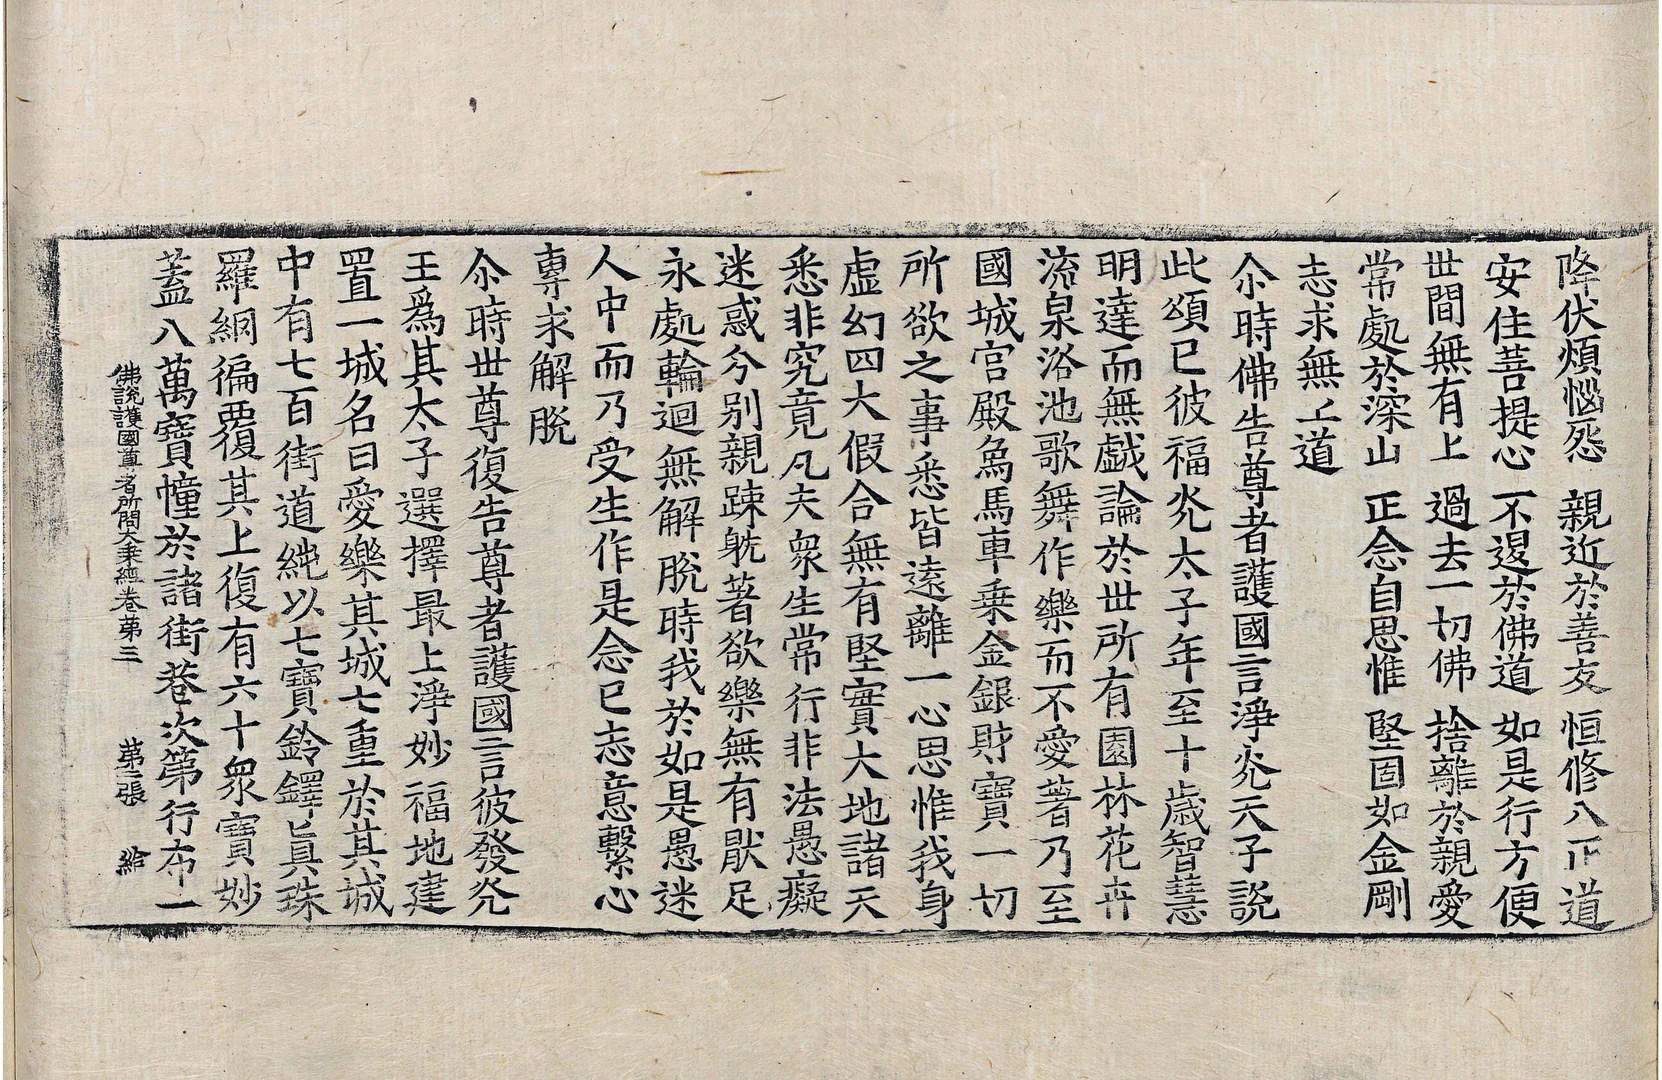 降伏煩惱怨　親近於善友　恒修八正道
安住菩提心　不退於佛道　如是行方便
世間無有上　過去一切佛　捨離於親愛
常處於深山　正念自思惟　堅固如金剛
志求無上道
尒時佛告尊者護國言淨光天子說
此頌已彼福光太子年至十歲智慧
明達而無戱論於世所有園林花卉
流泉浴池歌舞作樂而不愛著乃至
國城宮殿象馬車乗金銀財寶一切
所欲之事悉皆遠離一心思惟我身
虛幻四大假合無有堅實大地諸天
悉非究竟凡夫衆生常行非法愚癡
迷惑今別親踈躭著欲樂無有猒足
永處輪迴無解脫時我於如是愚迷
人中而乃受生作是念已志意繫心
專求解脫
尒時世尊復告尊者護國言彼發光
王爲其太子選擇最上淨妙福地建
置一城名曰愛樂其城七重於其城
中有七百街道純以七寶鈴鐸眞珠
羅網徧覆其上復有六十衆寶妙
蓋八萬寶幢於諸街巷次第行布一
佛說護國尊者所問大乗經卷第三　第二張　給